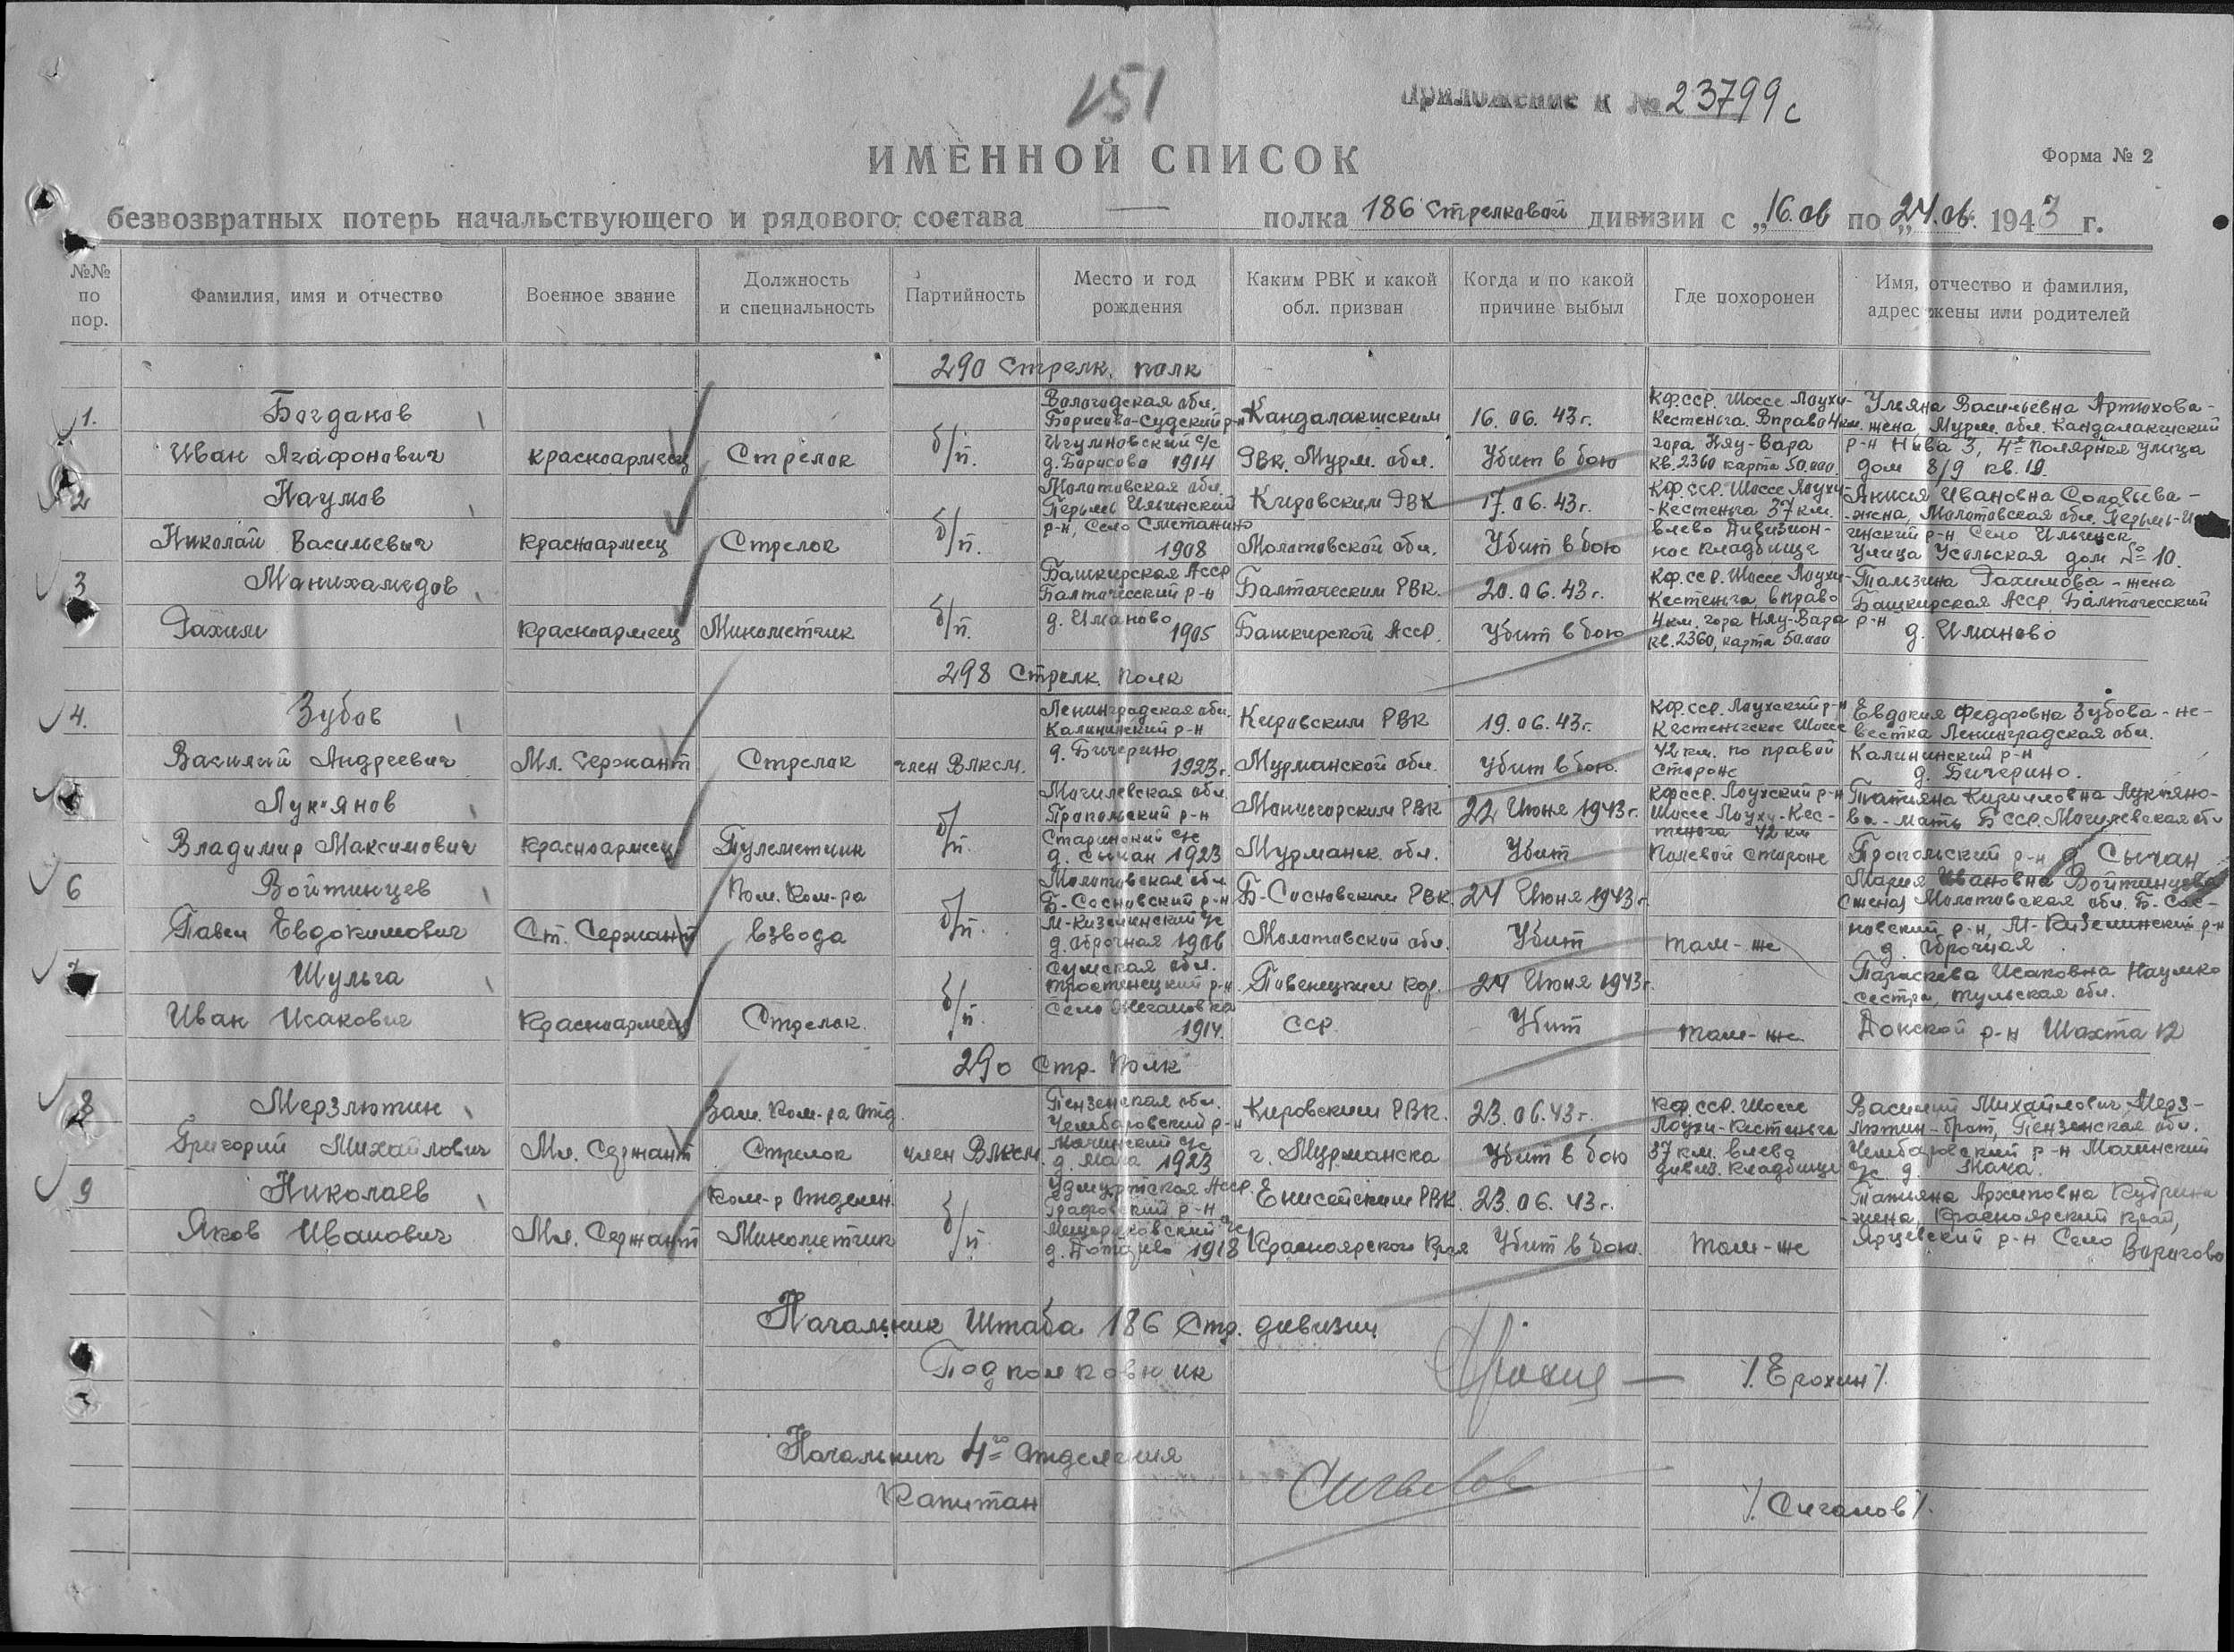 151
Приложение к № 23799с
ИМЕННОЙ СПИСОК
Форма № 2
безвозвратных потерь начальствующего и рядового состава — полка 186 Стрелковой дивизии с „16.06 по „24.06. 1943 г.
№№ по пор.
Фамилия, имя и отчество
Военное звание
Должность и специальность
Партийность
Место и год рождения
Каким РВК и какой обл. призван
Когда и по какой причине выбыл
Где похоронен
Имя, отчество и фамилия, адрес жены или родителей
290 Стрелк. полк
1.
Богданов
Иван Агафонович
красноармеец
Стрелок
б/п.
Вологодская обл.
Борисово-Судский р-н
Игумновский с/с
д. Борисово 1914
Кандалакшским
РВК. Мурм. обл.
16.06.43г.
Убит в бою
Кф.сср. Шоссе Лоухи-
Кестеньга. Вправо 4 км.
гора Няу-Вара
кв. 2360 карта 50.000.
Ульяна Васильевна Артюхова-
жена, Мурм. обл. Кандалакшский
р-н Нива 3, 4я Полярная улица
дом 8/9 кв. 19.
2
Наумов
Николай Васильевич
Красноармеец
Стрелок
б/п.
Молотовская обл.
Пермь Ильинский
р-н, Село Сметанино
1908
Кировским РВК
Молотовской обл.
17.06.43г.
Убит в бою
Кф.сср. Шоссе Лоухи-
-Кестеньга 37 км.
влево Дивизион-
ное кладбище
Анисья Ивановна Соловьева-
-жена, Молотовская обл. Пермь-И
инский р-н, Село Ильинск
Улица Усольская дом № 10.
3
Манихамедов
Рахим
Красноармеец
Минометчик
б/п.
Башкирская Асср
Балтачесский р-н
д. Иманово
1905
Балтаческим РВК.
Башкирской Асср.
20.06.43г.
Убит в бою
Кф.сср. Шоссе Лоухи-
Кестеньга вправо
4 км. гора Няу-Вара
кв. 2360, карта 50.000
Тамзина Рахимова - жена
Башкирская Асср, Балтачесский
р-н
д. Иманово
298 Стрелк. Полк
4.
Зубов
Василий Андреевич
Мл. Сержант
Стрелок
член Влксм.
Ленинградская обл.
Калининский р-н
д. Бичерино
1923г.
Кировским РВК
Мурманской обл.
19.06.43г.
Убит в бою.
Кф.сср. Лоухский р-н
Кестеньгское Шоссе
42 км. по правой
Стороне
Евдокия Федоровна Зубова-не-
вестка Ленинградская обл.
Калининский р-н
д. Бичерино.
5
Лук"янов
Владимир Максимович
Красноармеец
Пулеметчик
б/п.
Могилевская обл.
Пропольский р-н
Старинский с/с
д. Сычан 1923
Мончегорским РВК
Мурманск. обл.
22 Июня 1943г.
Убит
Кфсср. Лоухский р-н
Шоссе Лоухи-Кес-
теньга 42 км
По левой Стороне
Татьяна Кирилловна Лукьяно-
ва-мать Бсср. Могилевская обл
Пропольский р-н д. Сычан
6
Войтинцев
Павел Евдокимович
Ст. Сержант
Пом. Ком-ра
взвода
б/п.
Молотовская обл
Б-Сосновский р-н
М-Кизелинский с/с
д. Оброчная 1906
Б-Сосновским РВК.
Молотовской обл.
24 Июня 1943г.
Убит
там-же
Мария Ивановна Войтинцева
(жена) Молотовская обл. Б-Сос-
новский р-н, М-Кизелинский р-н
д. Оброчная
7
Шульга
Иван Исакович
Красноармеец
Стрелок.
б/п.
Сумская обл.
тростенецкий р-н.
Село
1914.
Повенецким Кф.
ССР.
24 Июня 1943г.
Убит
там-же.
Параскева Исаковна Наумко
сестра, тульская обл.
Донской р-н Шахта 12
290 Стр. Полк
8
Мерзлютин
Григорий Михайлович
Мл. Сержант
Зам. Ком-ра отд.
Стрелок
член Влксм.
Пензенская обл.
Чембаровский р-н
Мачинский с/с
д. Мача 1923
Кировским РВК.
г. Мурманска
23.06.43г.
Убит в бою
Кф.сср. Шоссе
Лоухи-Кестеньга
37 км. влево
дивиз. кладбище
Василий Михайлович Мерз-
лютин-брат, Пензенская обл.
Чембаровский р-н Мачинский
с/с д. Мача.
9
Николаев
Яков Иванович
Мл. Сержант
Ком-р отделен.
Минометчик
б/п
Удмуртская Асср.
Граховский р-н
Мещеряковский с/с
д. 1918
Енисейским РВК.
Красноярского Края
23.06.43г.
Убит в бою.
Там-же
Татьяна Архиповна Кудрина
-жена, Красноярский край,
Ярцевский р-н Село
Ворогово
Начальник Штаба 186 Стр. дивизии
Подполковник
/.Ерохин/.
Начальник 4го отделения
Капитан
/.Сигалов/.